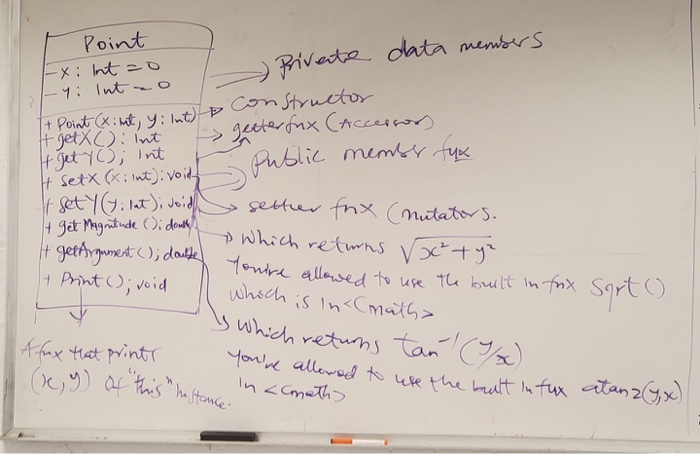 Point
-x: Int = 0
-y: Int = 0
+ Point(x: int, y: Int)
+ getX(): Int
+ getY(); Int
+ setX(x: int): void
+ setY(y: Int): void
+ getMagnitude(): double
+ getArgument(); double
+ Print(); void
Private data members
constructor
getter fnx (Accessors)
Public member fnx
setter fnx (mutators.
which returns √x²+y²
You're allowed to use the built in fnx sqrt()
which is in <cmath>
which returns tan⁻¹(y/x)
You're allowed to use the built in fnx atan2(y,x)
in <cmath>
A fnx that prints
(x,y) of "this" instance.